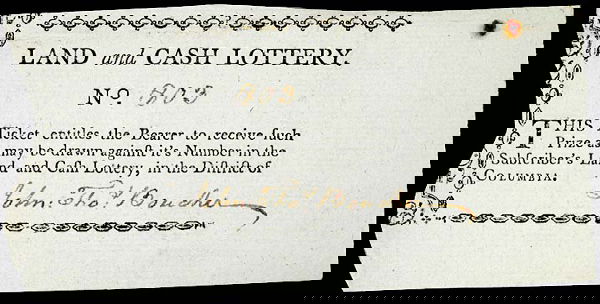 LAND and CASH LOTTERY.
No. 503
THIS Ticket entitles the Bearer to receive ſuch
Prize as may be drawn againſt it's Number in the
Subſcriber's Land and Caſh Lottery, in the Diſtrict of
COLUMBIA.
John Thos. Boucher